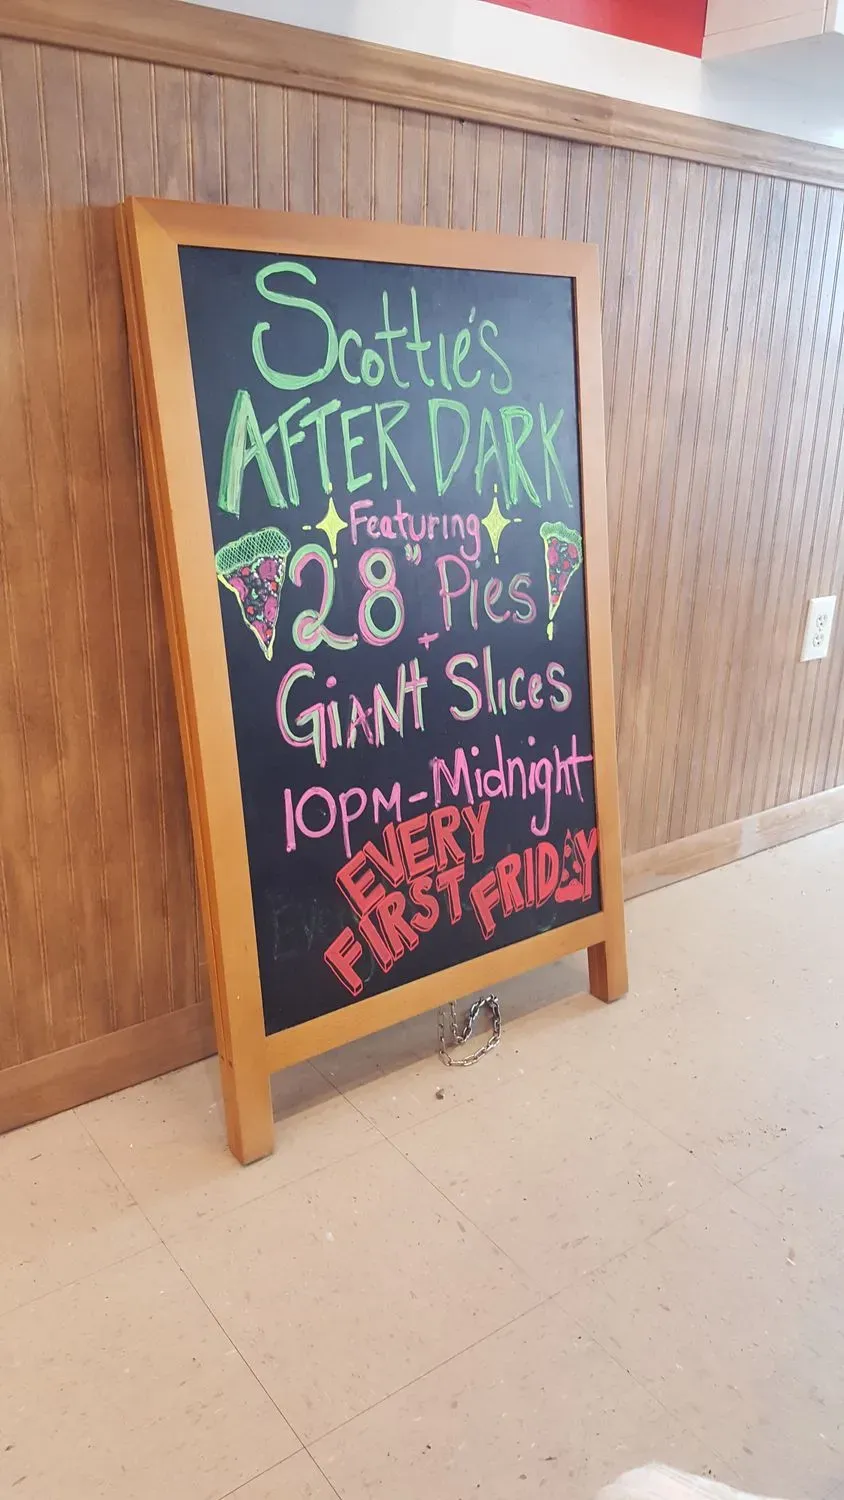 Scottie's
AFTER DARK
Featuring
28" Pies
+
GIANT Slices
10PM-Midnight
EVERY
FIRST FRIDAY